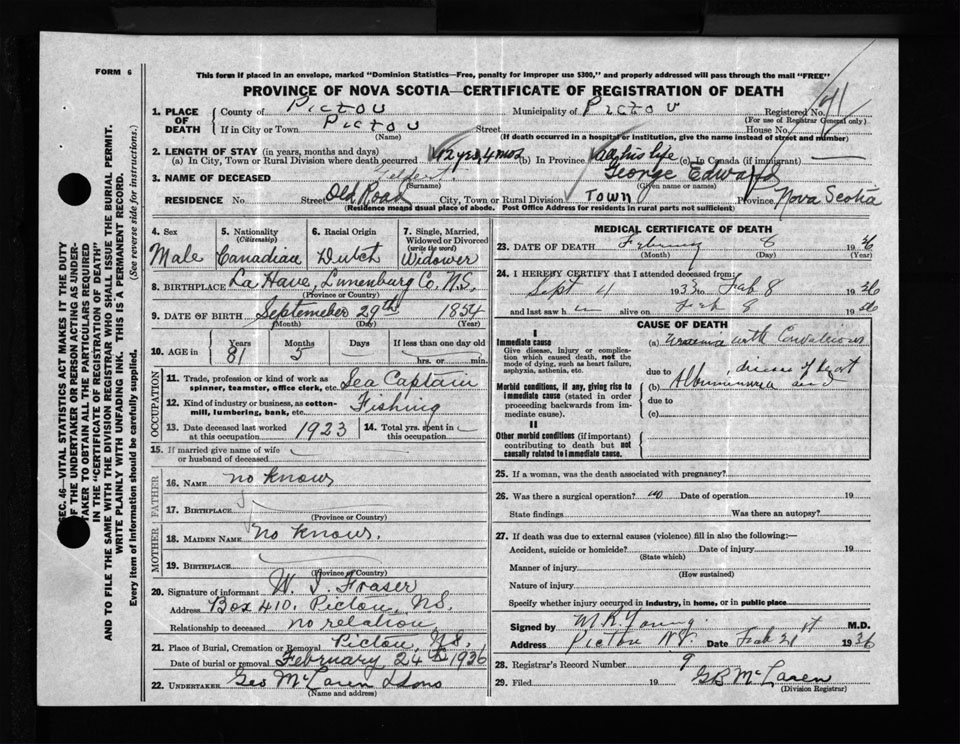 FORM 6
This form if placed in an envelope, marked "Dominion Statistics—Free, penalty for improper use $300," and properly addressed will pass through the mail "FREE"
PROVINCE OF NOVA SCOTIA—CERTIFICATE OF REGISTRATION OF DEATH
1. PLACE OF DEATH County of Pictou Municipality of Pictou Registered No. 41
(For use of Registrar General only)
If in City or Town Pictou Street House No.
(Name) (If death occurred in a hospital or institution, give the name instead of street and number)
2. LENGTH OF STAY (in years, months and days)
(a) In City, Town or Rural Division where death occurred 12 yrs, 4 mos (b) In Province All his life (c) In Canada (if immigrant)
3. NAME OF DECEASED George Edward
(Surname) (Given name or names)
RESIDENCE No. Street Old Road City, Town or Rural Division Town Province Nova Scotia
(Residence means usual place of abode. Post Office Address for residents in rural parts not sufficient)
4. Sex Male
5. Nationality (Citizenship) Canadian
6. Racial Origin Dutch
7. Single, Married, Widowed or Divorced (write the word) Widower
8. BIRTHPLACE La Have, Lunenburg Co. N.S.
(Province or Country)
9. DATE OF BIRTH Septemeber 29th 1854
(Month) (Day) (Year)
10. AGE in Years 81 Months 5 Days If less than one day old hrs. or min.
OCCUPATION
11. Trade, profession or kind of work as spinner, teamster, office clerk, etc. Sea Captain
12. Kind of industry or business, as cotton-mill, lumbering, bank, etc. Fishing
13. Date deceased last worked at this occupation 1923 14. Total yrs. spent in this occupation
15. If married give name of wife or husband of deceased
FATHER
16. NAME no knows
17. BIRTHPLACE
(Province or Country)
MOTHER
18. MAIDEN NAME no knows.
19. BIRTHPLACE
(Province or Country)
20. Signature of informant W. J. Fraser
Address Box 410, Pictou, N.S.
Relationship to deceased no relation
21. Place of Burial, Cremation or Removal Pictou, N.S.
Date of burial or removal February 24th 1936
22. UNDERTAKER Geo McLaren & Sons
(Name and address)
MEDICAL CERTIFICATE OF DEATH
23. DATE OF DEATH February 8 1936
(Month) (Day) (Year)
24. I HEREBY CERTIFY that I attended deceased from:
Sept 4 1933 to Feb 8 1936
and last saw h im alive on Feb 8 1936
CAUSE OF DEATH
I
Immediate cause
Give disease, injury or complication which caused death, not the mode of dying, such as heart failure, asphyxia, asthenia, etc.
(a) Uraemia with Convulsions
due to
Morbid conditions, if any, giving rise to immediate cause (stated in order proceeding backwards from immediate cause).
(b) Albuminuria and disease of heart
due to
(c)
II
Other morbid conditions (if important) contributing to death but not causally related to immediate cause.
25. If a woman, was the death associated with pregnancy?
26. Was there a surgical operation? no Date of operation 19
State findings Was there an autopsy?
27. If death was due to external causes (violence) fill in also the following:—
Accident, suicide or homicide? Date of injury 19
(State which)
Manner of injury
(How sustained)
Nature of injury
Specify whether injury occurred in industry, in home, or in public place
Signed by M R Young M.D.
Address Pictou N.S. Date Feb 21st 1936
28. Registrar's Record Number 9
29. Filed 19 G B McLaren
(Division Registrar)
SEC. 46—VITAL STATISTICS ACT MAKES IT THE DUTY
OF THE UNDERTAKER OR PERSON ACTING AS UNDER-
TAKER TO OBTAIN ALL THE PARTICULARS REQUIRED
IN THE "CERTIFICATE OF REGISTRATION OF DEATH"
AND TO FILE THE SAME WITH THE DIVISION REGISTRAR WHO SHALL ISSUE THE BURIAL PERMIT.
WRITE PLAINLY WITH UNFADING INK. THIS IS A PERMANENT RECORD.
Every item of Information should be carefully supplied. (See reverse side for instructions.)